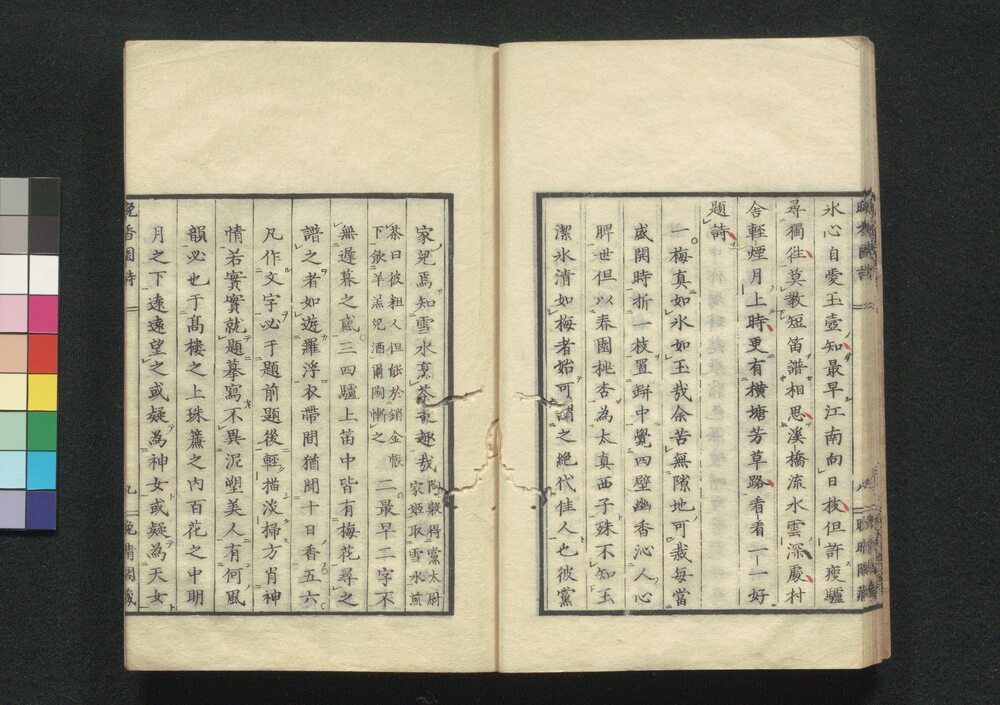 氷心自愛玉壺知最早江南向日枝但許瘦驢
尋獨徃莫敎短笛譜相思溪橋流水雲深處村
舍輕煙月上時更有横塘芳草路看看一一好
題詩
一梅真如氷如玉哉余苦無隙地可栽每當
盛開時折一枝置缾中覺四壁幽香沁人心
脾世但以春園桃杏為太真西子殊不知玉
潔氷清如梅者始可謂之絶代佳人也彼黨
家兒焉知雪水烹茶之趣哉陶穀得黨太尉家姬取雪水煎
茶曰彼粗人但能於銷金帳下飲羊羔兒酒爾陶慚之二最早二字不
無遲暮之感三四驢上笛中皆有梅花尋之
譜之者如遊羅浮衣帶間猶聞十日香五六
凡作文字必于題前題後輕描淡掃方肖神
情若實實就題摹寫不異泥塑美人有何風
韻必也于髙樓之上珠簾之內百花之中明
月之下遠遠望之或疑為神女或疑為天女
晩香園詩
九
晩晴閣藏